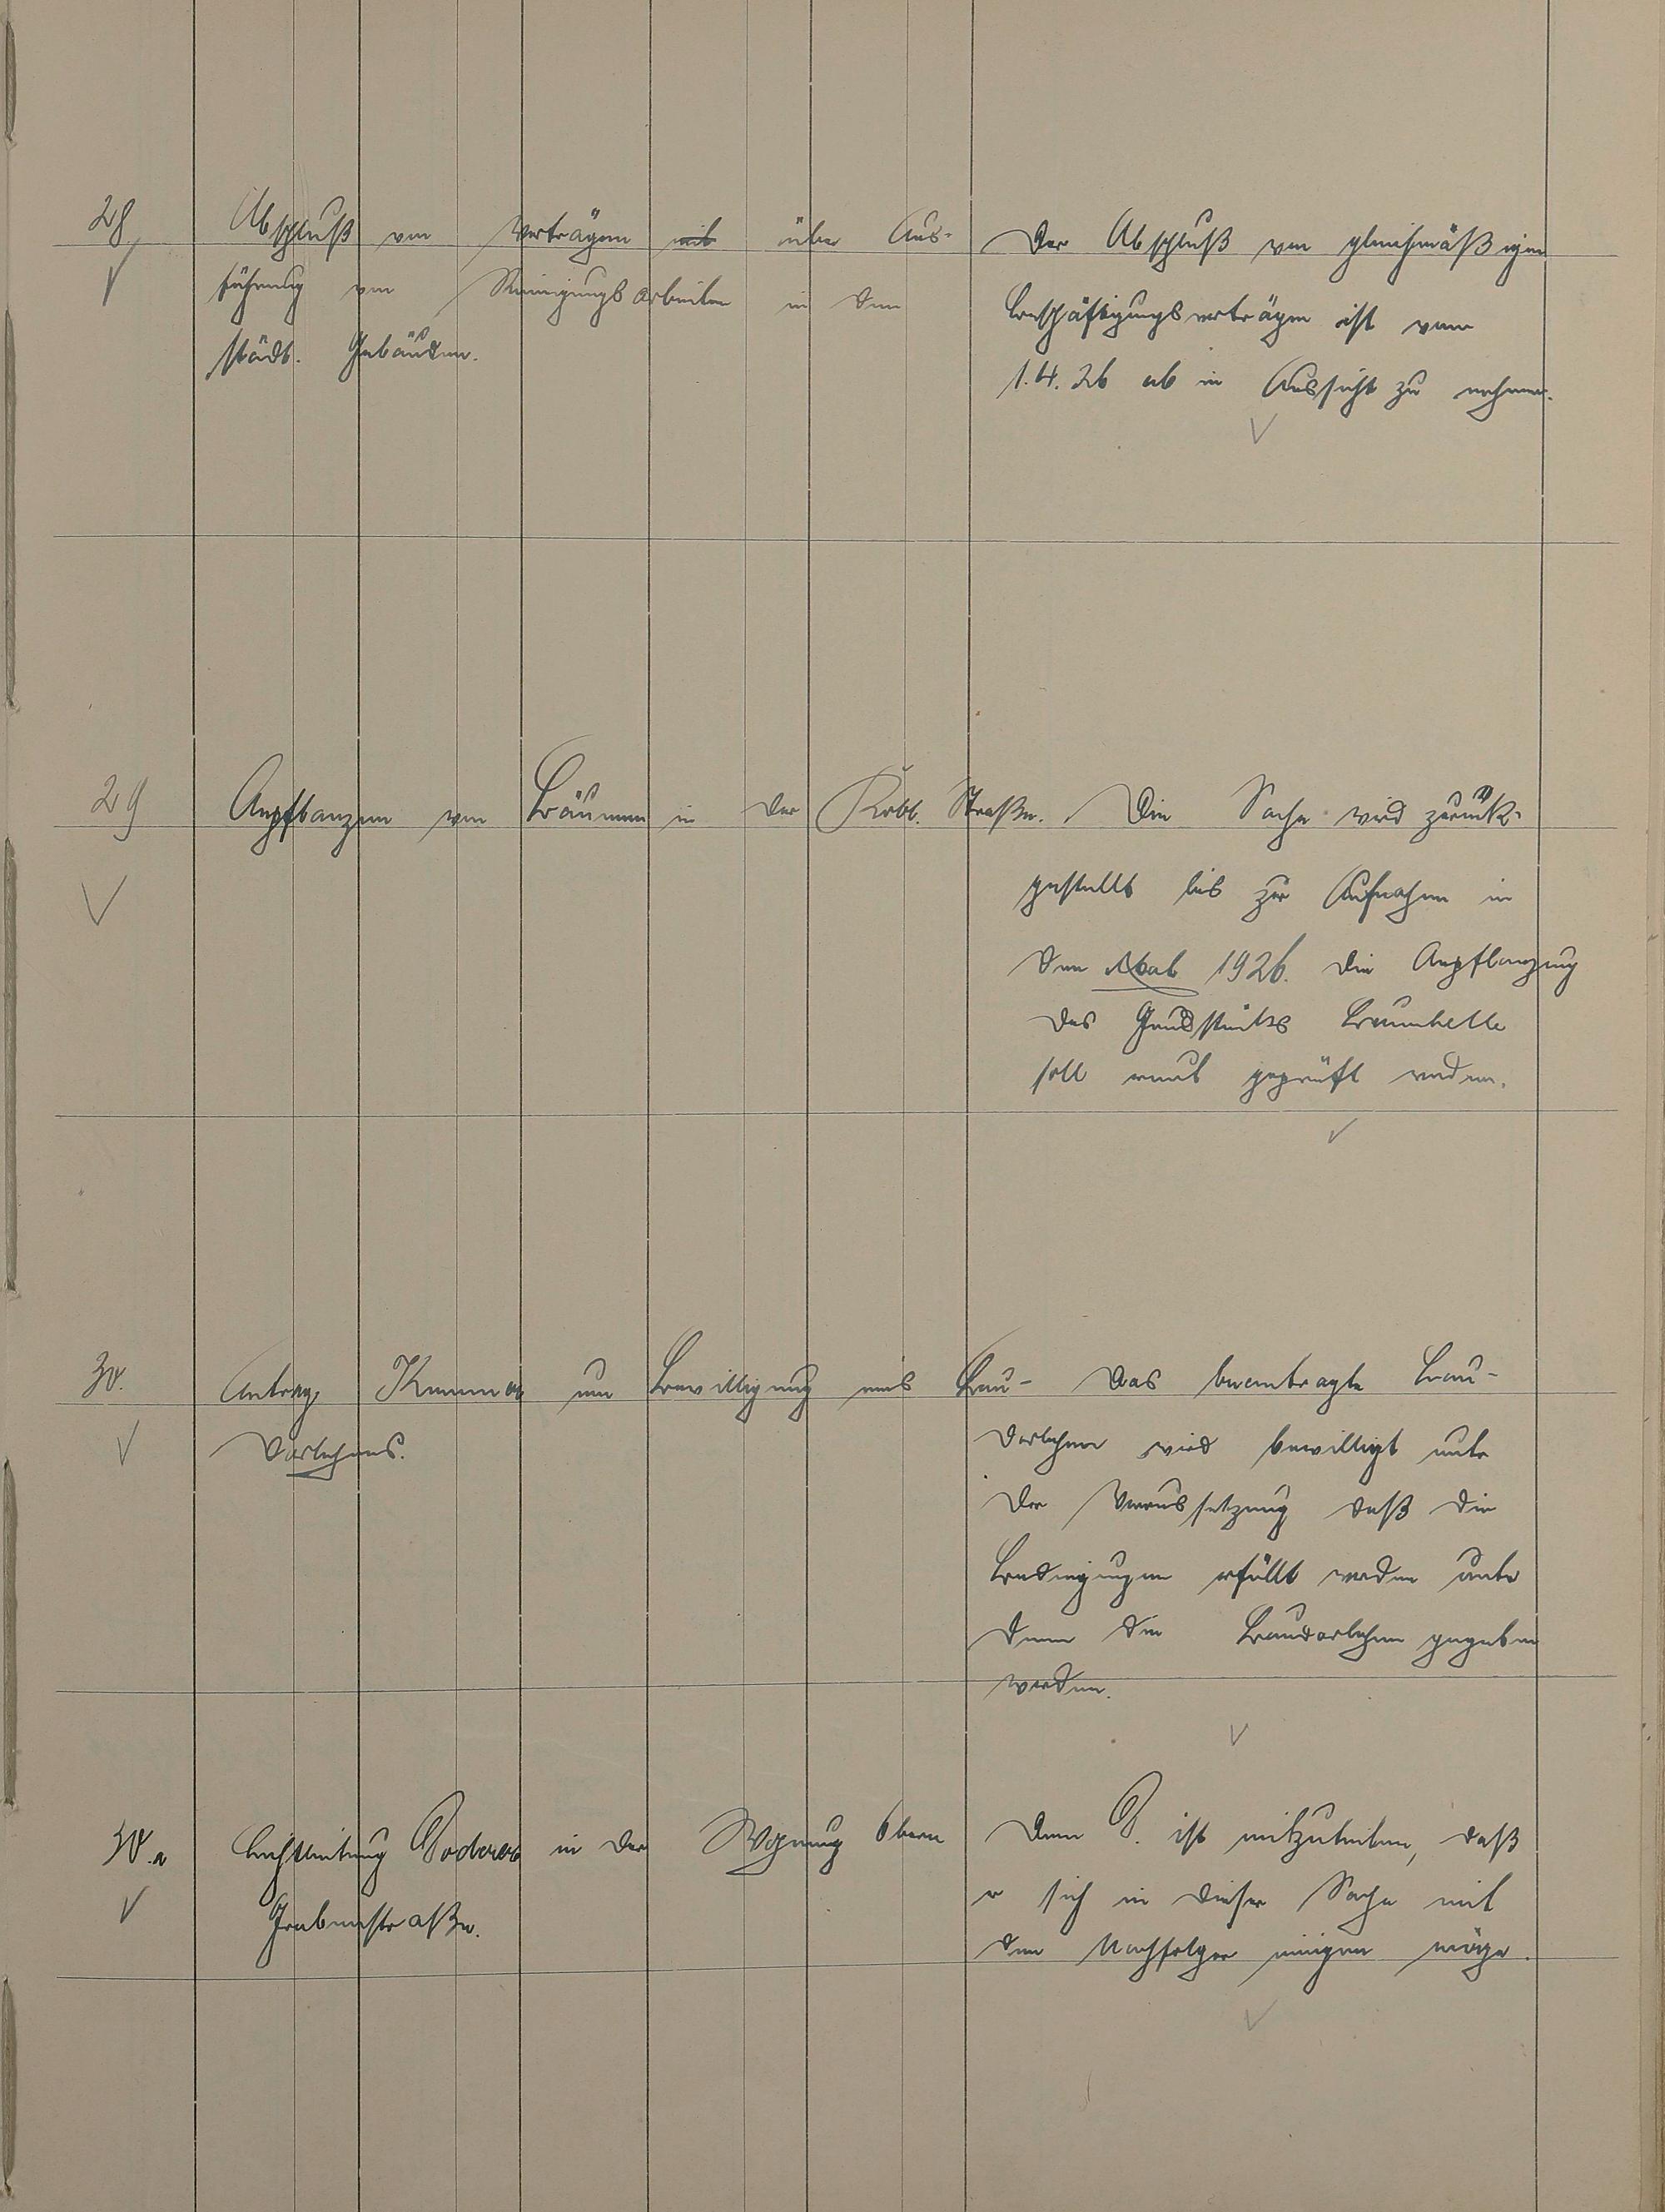 28
Abschluß von Verträgen mit über Aus-
führung von Reinigungsarbeiten in den
städt. Gebäuden.
Der Abschluß von gleichmäßigen
Beschäftigungsverträgen ist vom
1.4.26 ab in Aussicht zu nehmen.
29
Anpflanzen von Bäumen in der Straße.
Die Sache wird zurück-
gestellt bis zur Aufnahme in
den Etat 1926. Die Anpflanzung
des Grundstücks
soll evnt geprüft werden.
30.
Antrag um Bewilligung eines Bau-
darlehens.
Das beantragte Bau-
darlehen wird bewilligt unter
der Voraussetzung daß die
Bedingungen erfüllt werden unter
denen die Baudarlehen gegeben
werden.
30.a
Lichtleitung in der Wohnung Obere
Grabenstraße.
Dem P. ist mitzuteilen, daß
er sich in dieser Sache mit
dem Nachfolger einigen möge.